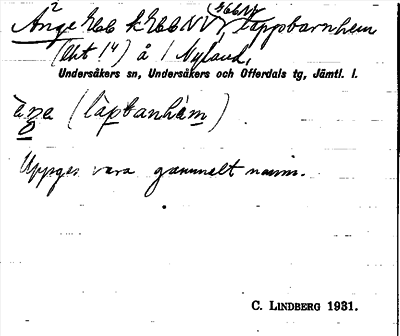 2
Änge Ebb k Ebb NV, lappbarnhem
(Okt 14) å 1 Nyland,
Undersåkers sn, Undersåkers och Offerdals tg, Jämtl. l.
(làptanhàm)
Uppges vara gammalt namn.
C. LINDBERG 1931.